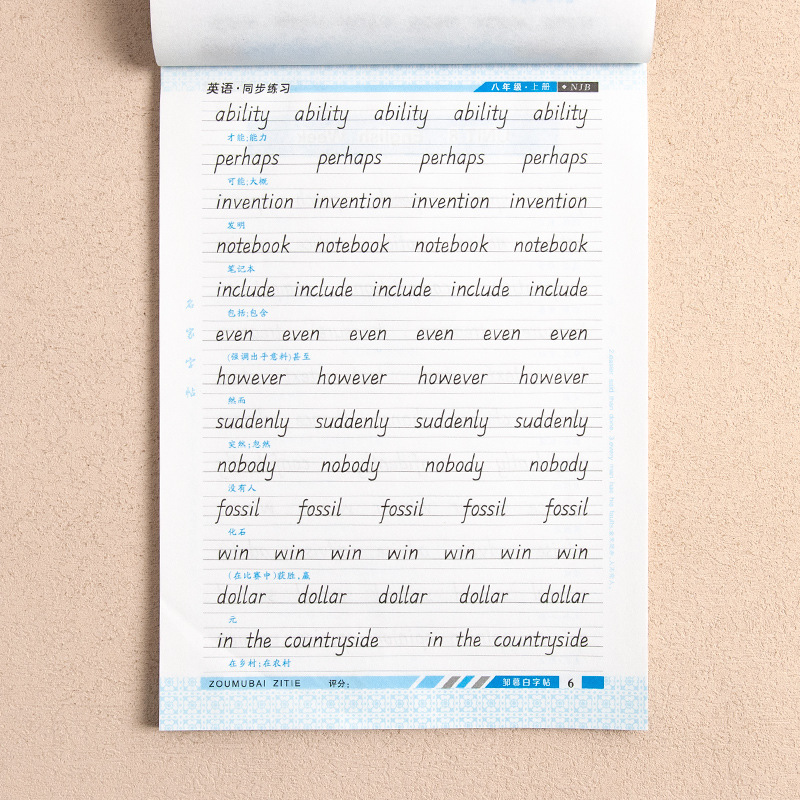 英语·同步练习 八年级·上册 NJB
ability ability ability ability ability
才能;能力
perhaps perhaps perhaps perhaps
可能;大概
invention invention invention invention
发明
notebook notebook notebook notebook
笔记本
include include include include include
包括;包含
even even even even even even
(强调出乎意料)甚至
however however however however
然而
suddenly suddenly suddenly suddenly
突然;忽然
nobody nobody nobody nobody
没有人
fossil fossil fossil fossil fossil
化石
win win win win win win win
(在比赛中)获胜,赢
dollar dollar dollar dollar dollar
元
in the countryside in the countryside
在乡村;在农村
名家字帖
ZOUMUBAI ZITIE 评分: 邹慕白字帖 6